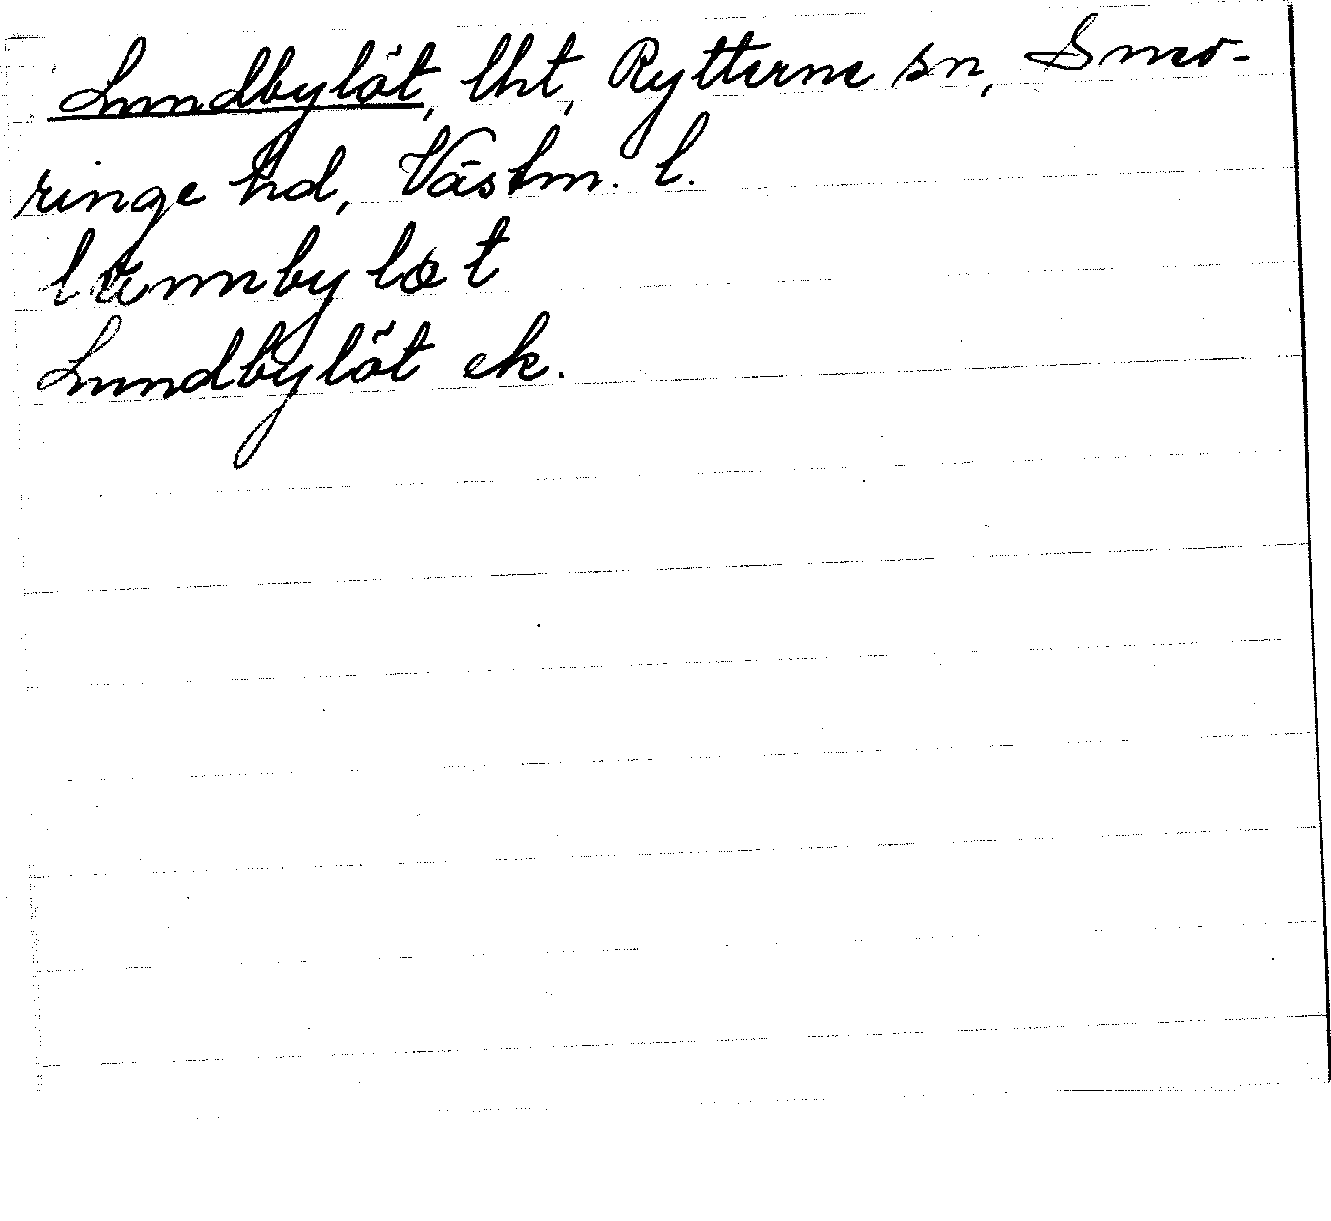 Lundbylöt, lht, Rytterne sn, Snev-
ringe hd, Västm. l.
Lundbylöt ek.